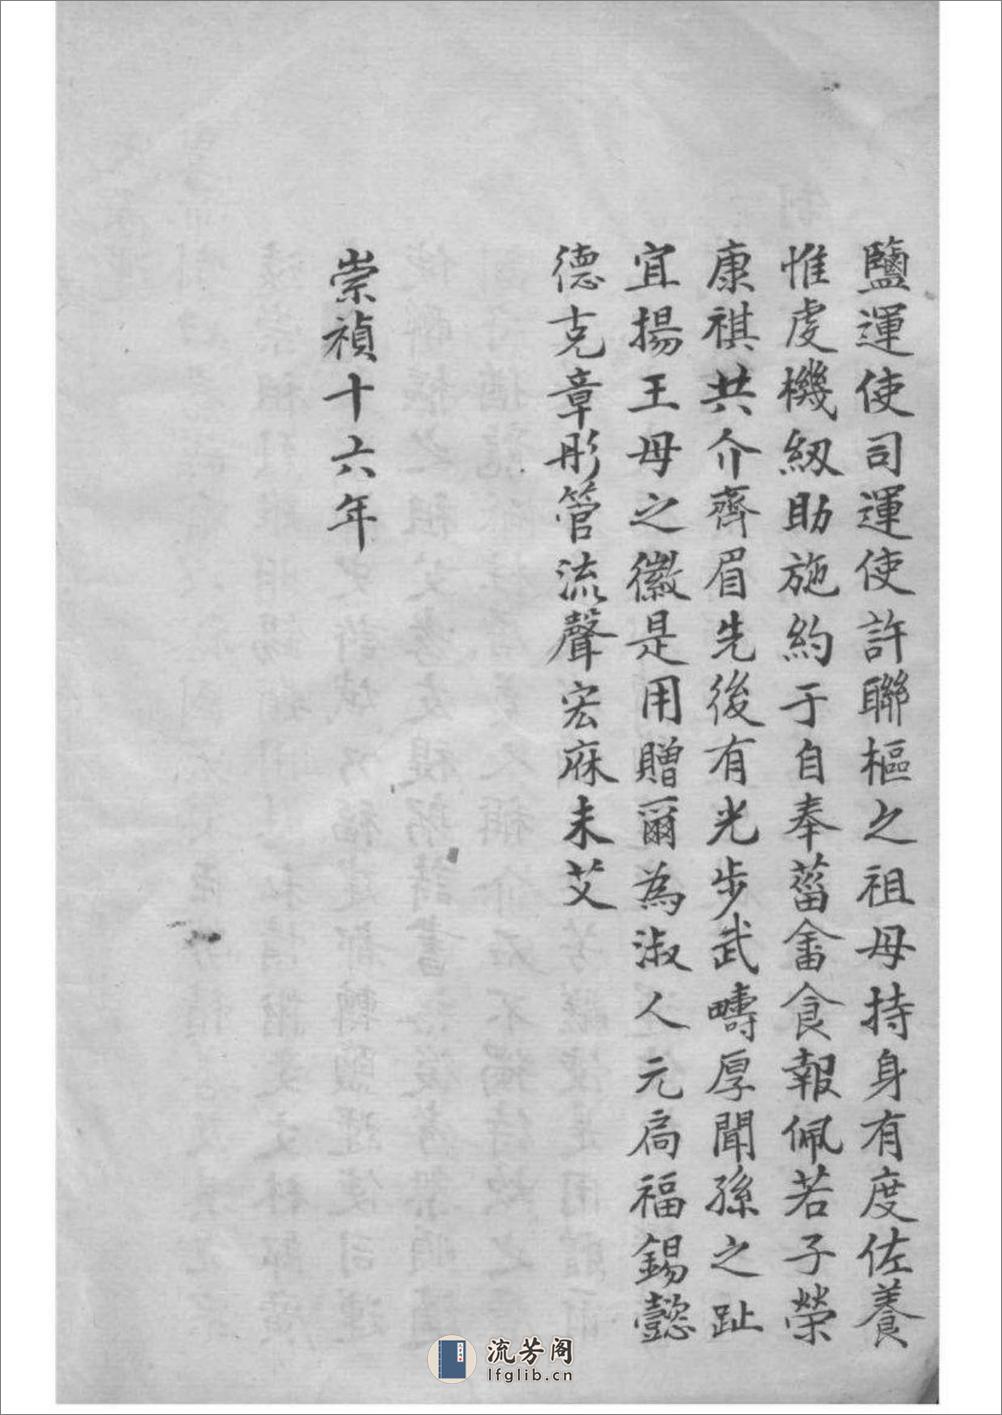 鹽運使司運使許聯樞之祖母持身有度佐養
惟虔機紉助施約于自奉菑畬食報佩若子榮
康祺共介齊眉先後有光步武疇厚聞孫之趾
宜揚王母之徽是用贈爾為淑人元扃福錫懿
德克章彤管流聲宏庥未艾
崇禎十六年
流芳阁
lfglib.cn